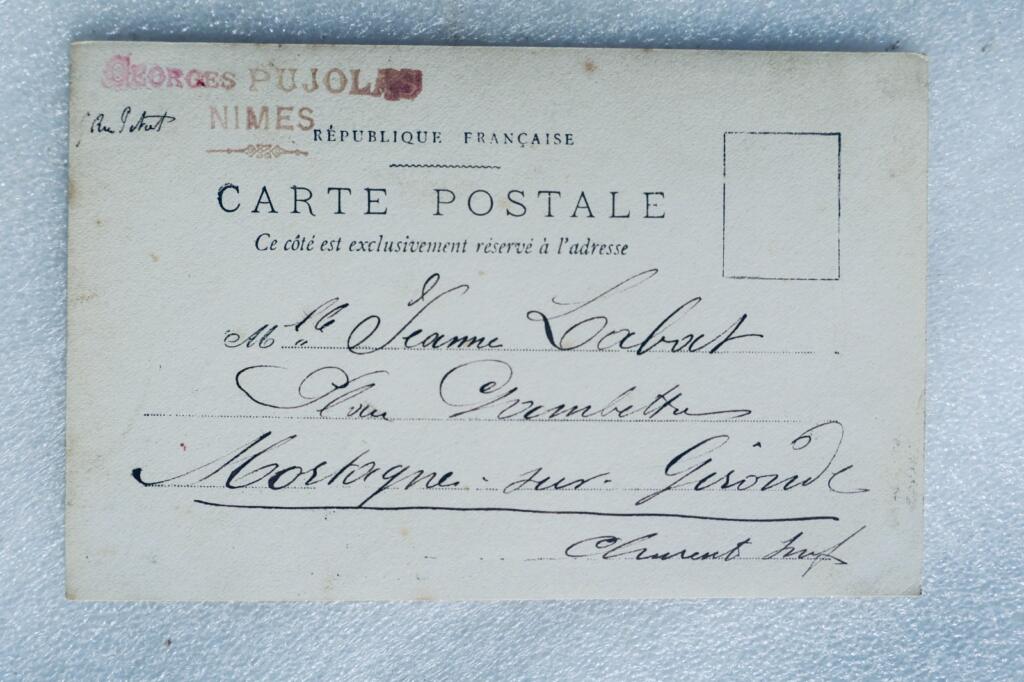 GEORGES PUJOLAS
NIMES
Rue
RÉPUBLIQUE FRANÇAISE
CARTE POSTALE
Ce côté est exclusivement réservé à l'adresse
Mlle Jeanne Labat
Place Gambetta
Mortagne-sur-Gironde
Charente Infre